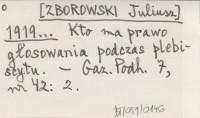 [ZBOROWSKI Juliusz]
1919... Kto ma prawo
głosowania podczas plebi-
scytu. – Gaz. Podh. 7,
nr 42: 2.